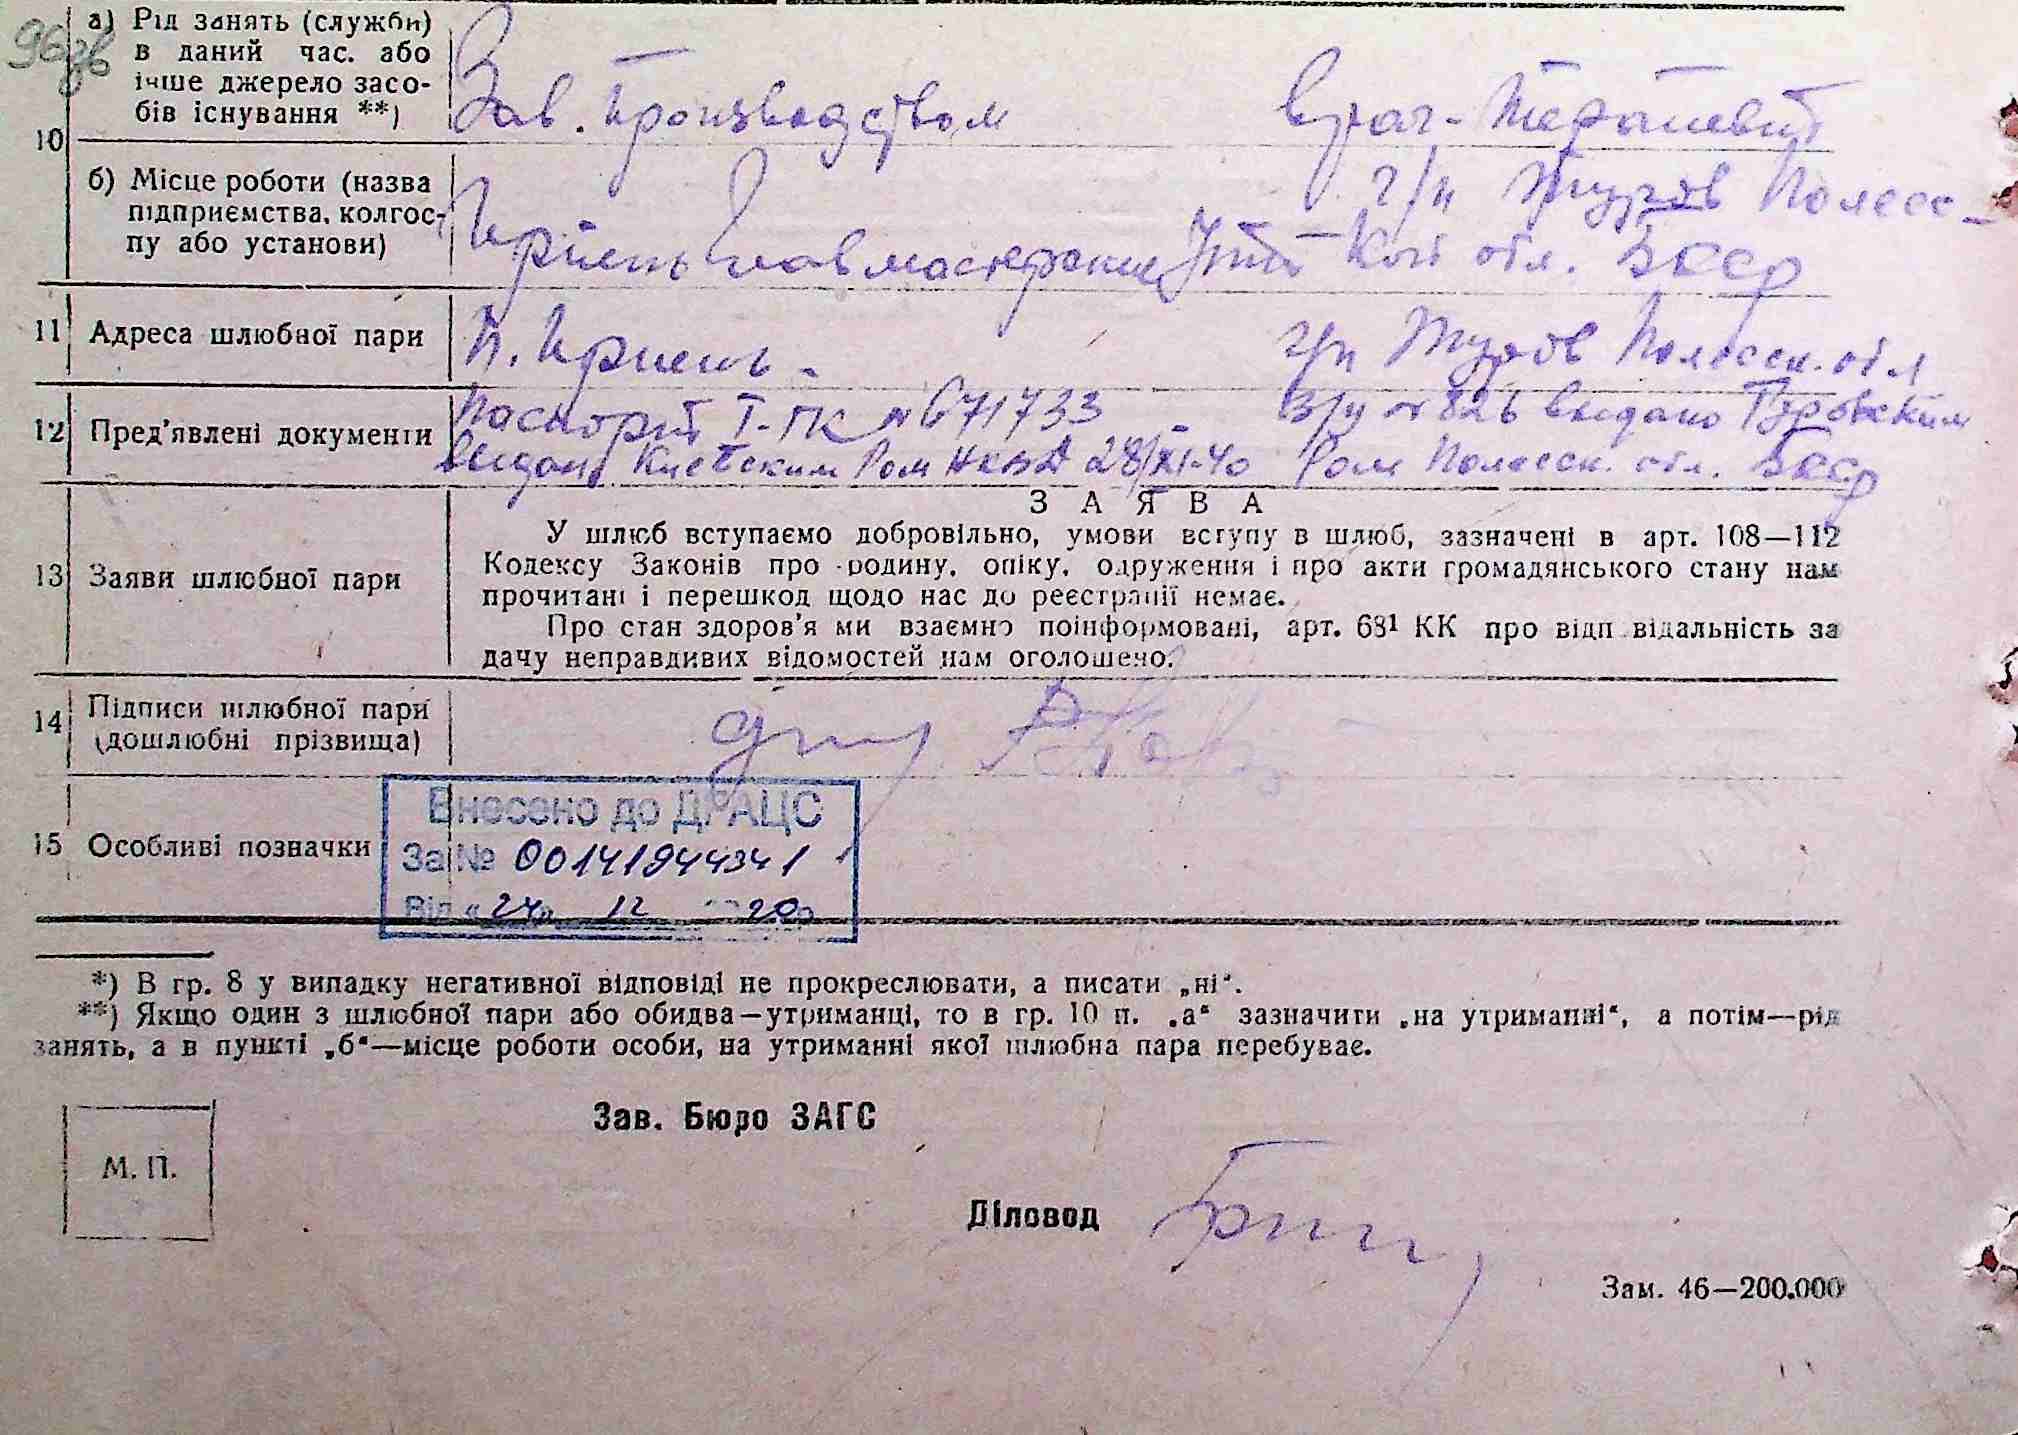 96зв
а) Рід занять (служби)
в даний час. або
інше джерело засо-
бів існування **)
Зав. Производством
Врач-Терапевт
10
б) Місце роботи (назва
підприємства, колгос-
пу або установи)
г/п Туров Полесс-
Ирпень Главмастерские
кой обл. БССР
11 Адреса шлюбної пари
п. Ирпень.
г/п Туров Полесск. обл
12 Пред'явлені документи
Паспорт Т-ПК № 671733
В/у № 826 выдано Туровским
Выдан Киевским Ром НКВД 28/XI-40
Ром Полесск. обл. БССР
ЗАЯВА
У шлюб вступаємо добровільно, умови вступу в шлюб, зазначені в арт. 108—112
13 Заяви шлюбної пари
Кодексу Законів про родину, опіку, одруження і про акти громадянського стану нам
прочитані і перешкод щодо нас до реєстрації немає.
Про стан здоров'я ми взаємно поінформовані, арт. 68¹ КК про відповідальність за
дачу неправдивих відомостей нам оголошено.
14 Підписи шлюбної пари
(дошлюбні прізвища)
Внесено до ДРАЦС
15 Особливі позначки
За № 00141944341
Від «24» 12 2020р
*) В гр. 8 у випадку негативної відповіді не прокреслювати, а писати „ні“.
**) Якщо один з шлюбної пари або обидва—утриманці, то в гр. 10 п. „а“ зазначити „на утриманні“, а потім—рід
занять, а в пункті „б“—місце роботи особи, на утриманні якої шлюбна пара перебуває.
Зав. Бюро ЗАГС
М. П.
Діловод
Зам. 46—200.000